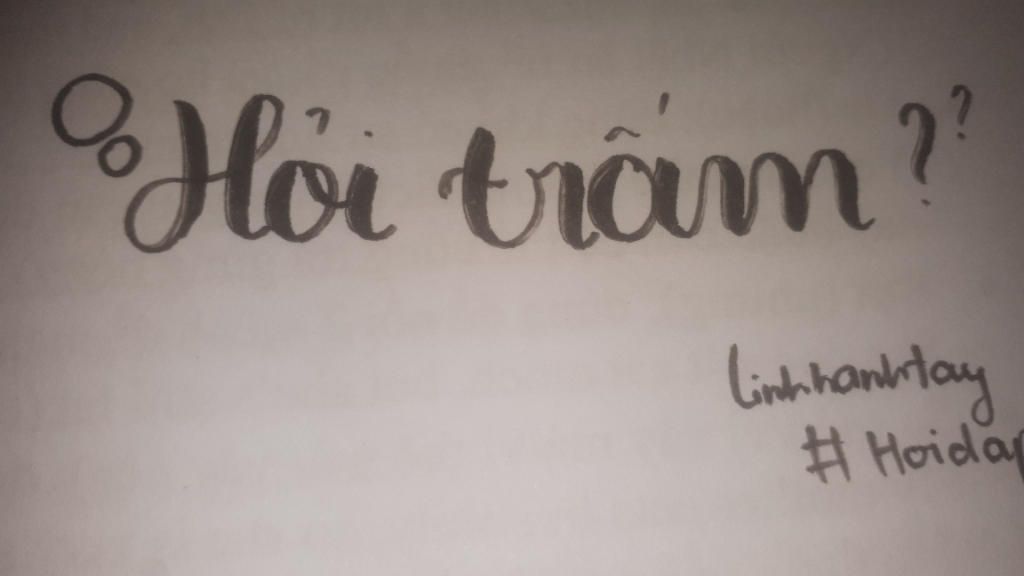 Hỏi trấm ??
Linhhanhtay
#Hoidap